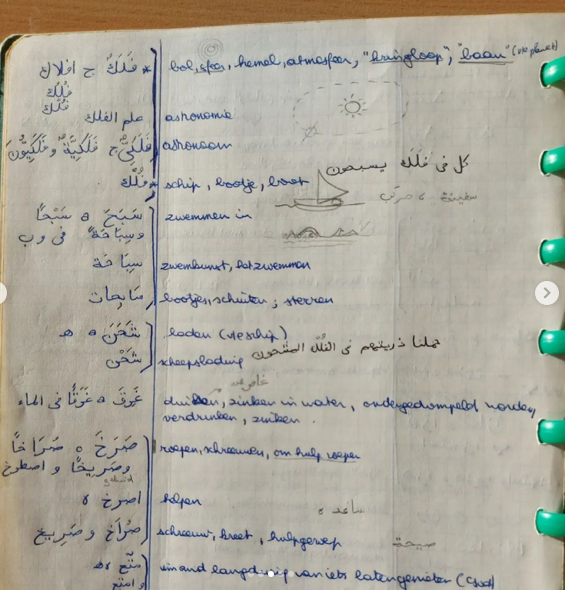 * فَلَكٌ ج افلاك bol, sfeer, hemel, atmosfeer, "kringloop", "baan" (v/e planeet)
فُلْكٌ
فُلُكٌ
علم الفلك astronomie
فَلَكِيٌّ ج فَلَكِيَّةٌ وفَلَكِيُّونَ astronoom
كل في فلك يسبحون
* فُلْكٌ schip, bootje, boot
سفينة ، مركب
سَبَحَ a سَبْحًا zwemmen in
وسِبَاحَةً في وب
سِبَاحَة zwemkunst, het zwemmen
سابحات bootjes, schuiten ; sterren
شَحَنَ a ه laden (v/e schip)
شَحْن scheepslading حملنا ذريتهم في الفلك المشحون
غَرِقَ a غَرَقًا في الماء zinken in water, ondergedompeld worden,
verdrinken, zinken.
صَرَخَ o صُرَاخًا roepen, schreeuwen, om hulp roepen
وصَرِيخًا و اصطرخ
اصرخ ه helpen
ساعد ه
صُرَاخ و صَرِيخ schreeuw, kreet, hulpgeroep صيحة
متّع ه ب iemand langdurig van iets laten genieten (God)
و امتع